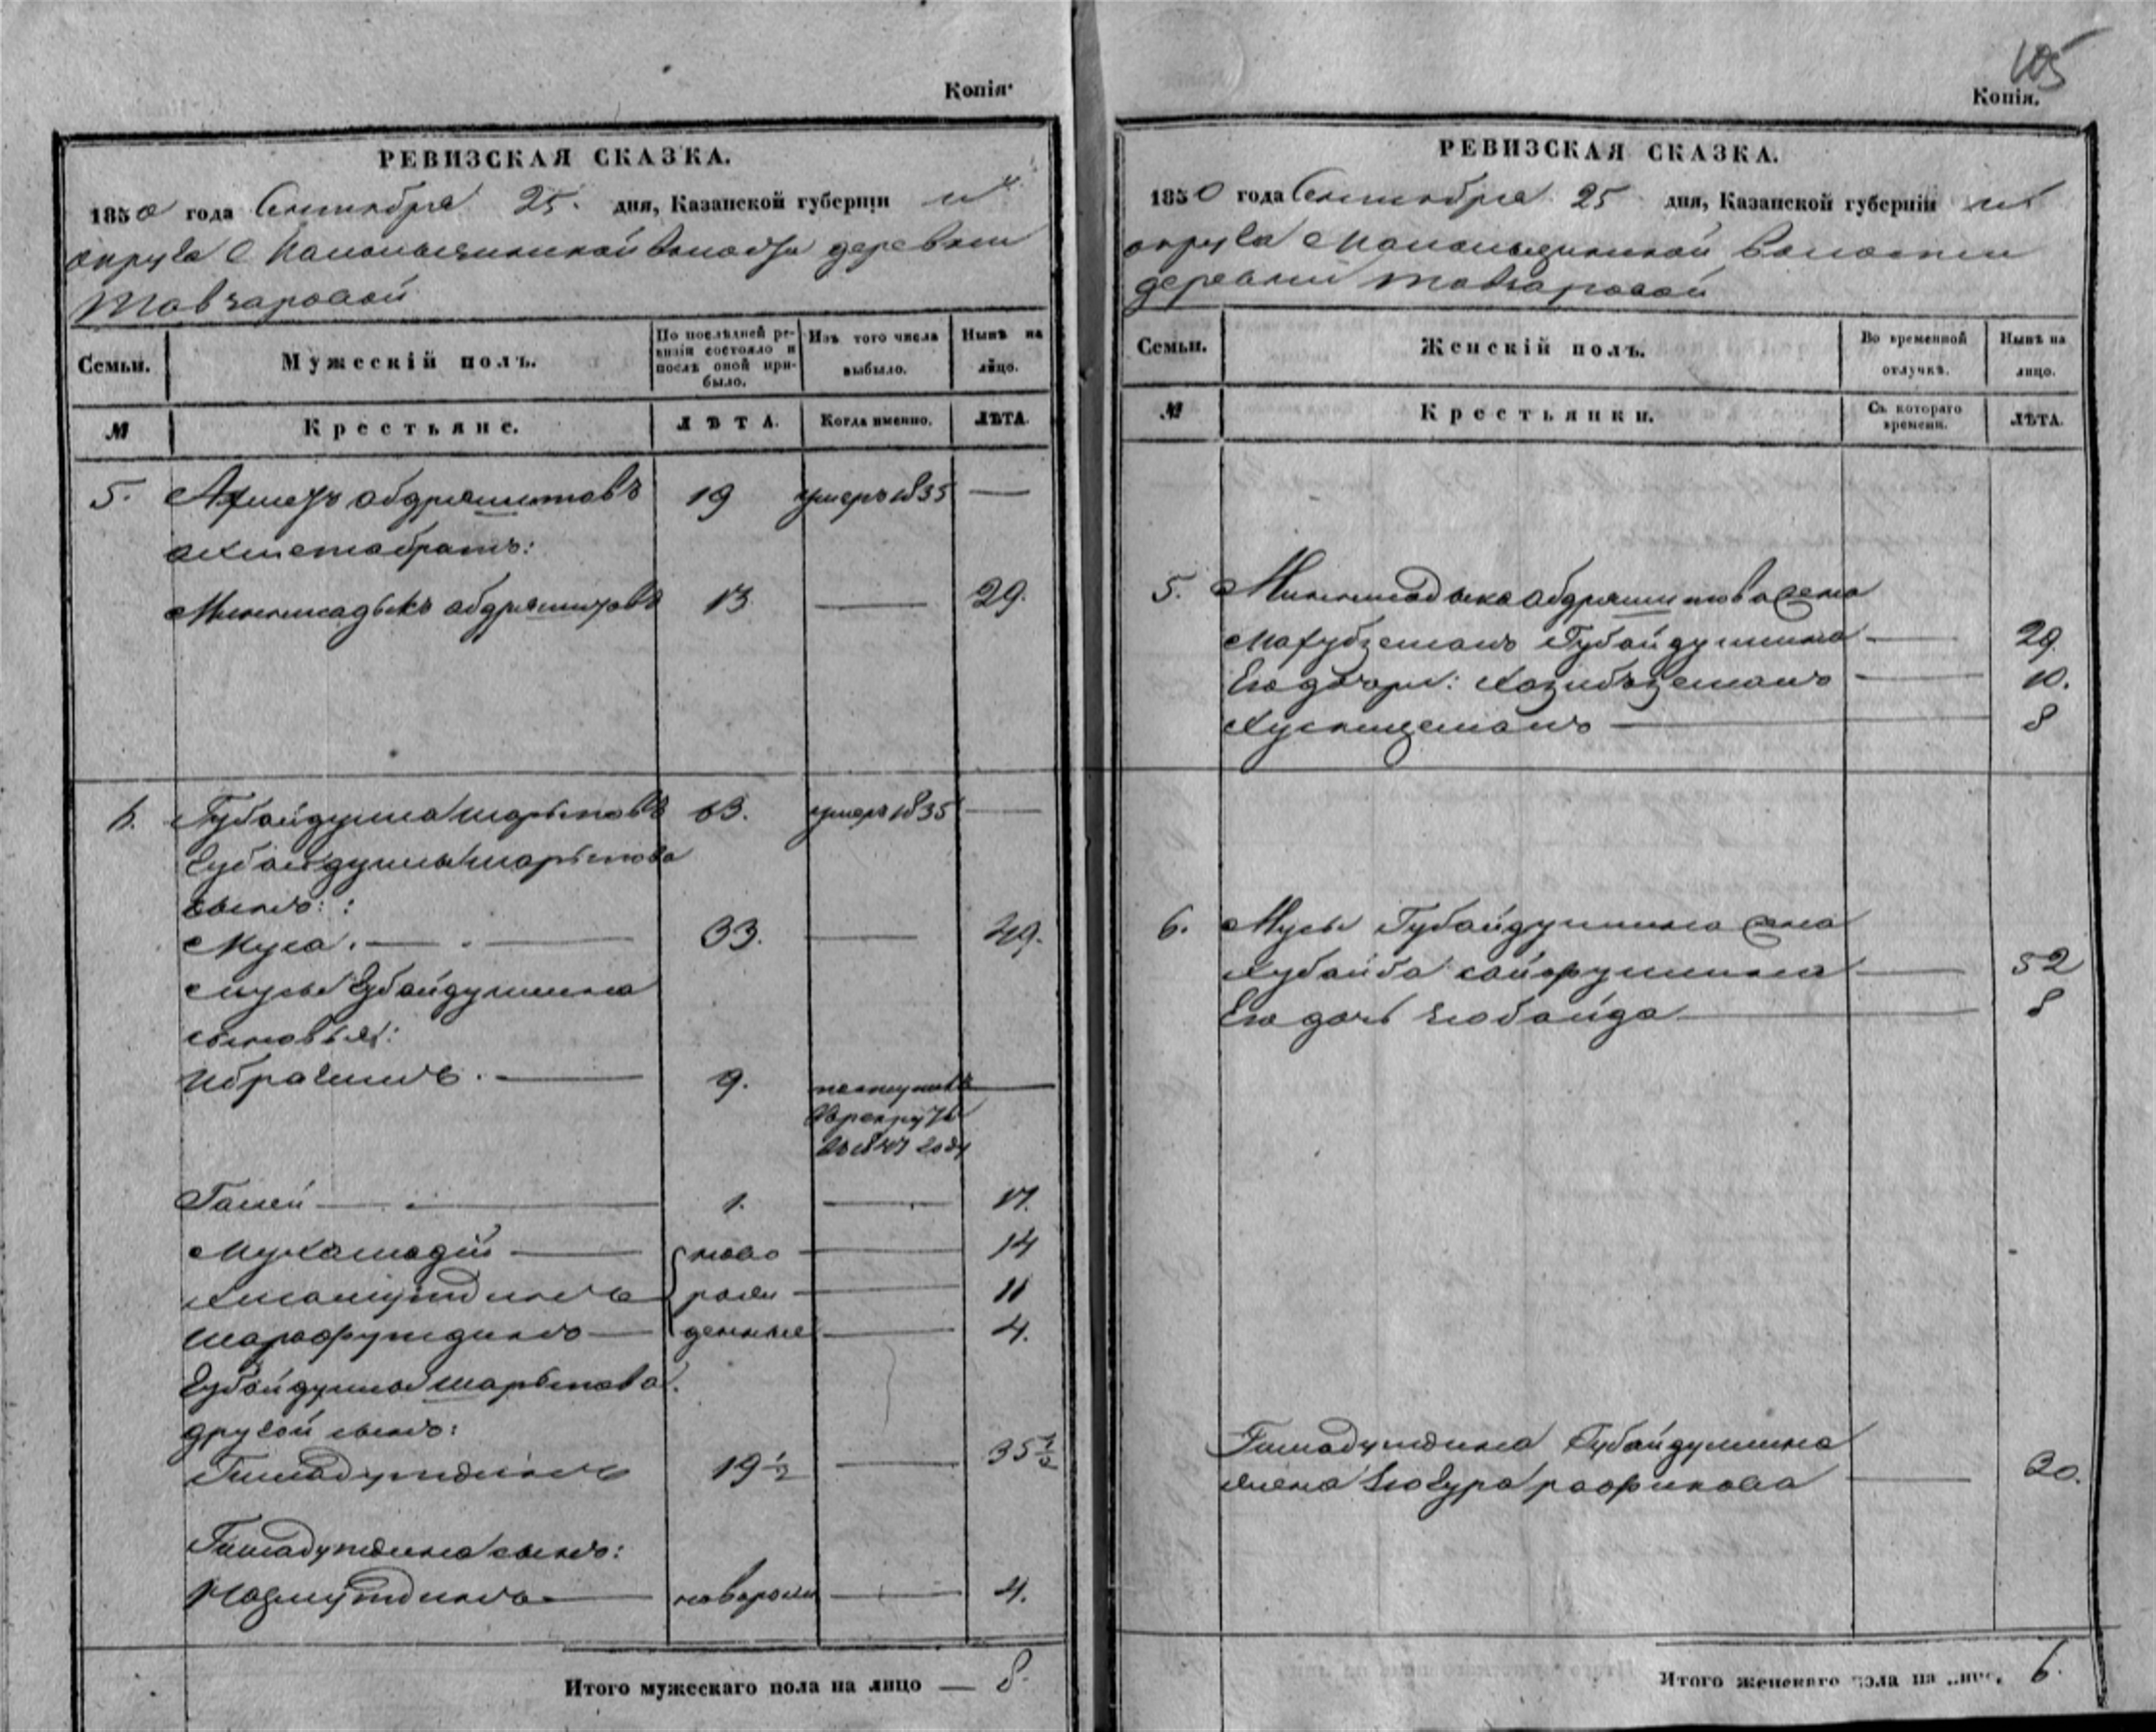 Копія.
РЕВИЗСКАЯ СКАЗКА.
1850 года Сентября 25. дня, Казанской губерніи
округа волости деревни
Тавзаровой
Семьи.
Мужескій полъ.
По послѣдней ревизіи состояло и послѣ оной прибыло.
Изъ того числа выбыло.
Нынѣ на лицо.
№
Крестьяне.
ЛѢТА.
Когда именно.
ЛѢТА.
5. Ахметъ абдряшитовъ 19 умеръ 1835 —
ахмета братъ:
Минишадыкъ абдряшитовъ 13 — 29.
6. Губайдулла шарыповъ 63. умеръ 1835 —
Губайдуллы шарыпова
сынъ:
Муса. — 33. — 49.
мусы Губайдуллина
сыновья:
Ибрагимъ. — 9. поступилъ —
в рекруты
въ 1847 году
Галей — 1. — 17.
Мухамадій — ново — 14
рож — 11
Шарафутдинъ — денные — 4.
Губайдуллы шарыпова
другой сынъ:
Гимадутдинъ 19 ½ — 35 ½
Гимадутдина сынъ:
Назмутдинъ — новорож — 4.
Итого мужескаго пола на лицо — 8.
105
Копія.
РЕВИЗСКАЯ СКАЗКА.
1850 года Сентября 25 дня, Казанской губерніи
округа волости
деревни Тавзаровой
Семьи.
Женскій полъ.
Во временной отлучкѣ.
Нынѣ на лицо.
№
Крестьянки.
Съ котораго времени.
ЛѢТА.
5. Минишадыка абдряшитова жена
Махубземалъ Губайдуллина — 29.
Его дочери: Хазибземалъ — 10.
— 8
6. Мусы Губайдуллина жена
Хубайба сайфуллина — 52
Его дочь Зюбайда — 8
Гимадутдина Губайдуллина
жена Зюгура рафикова — 30.
Итого женскаго пола на лицо 6.